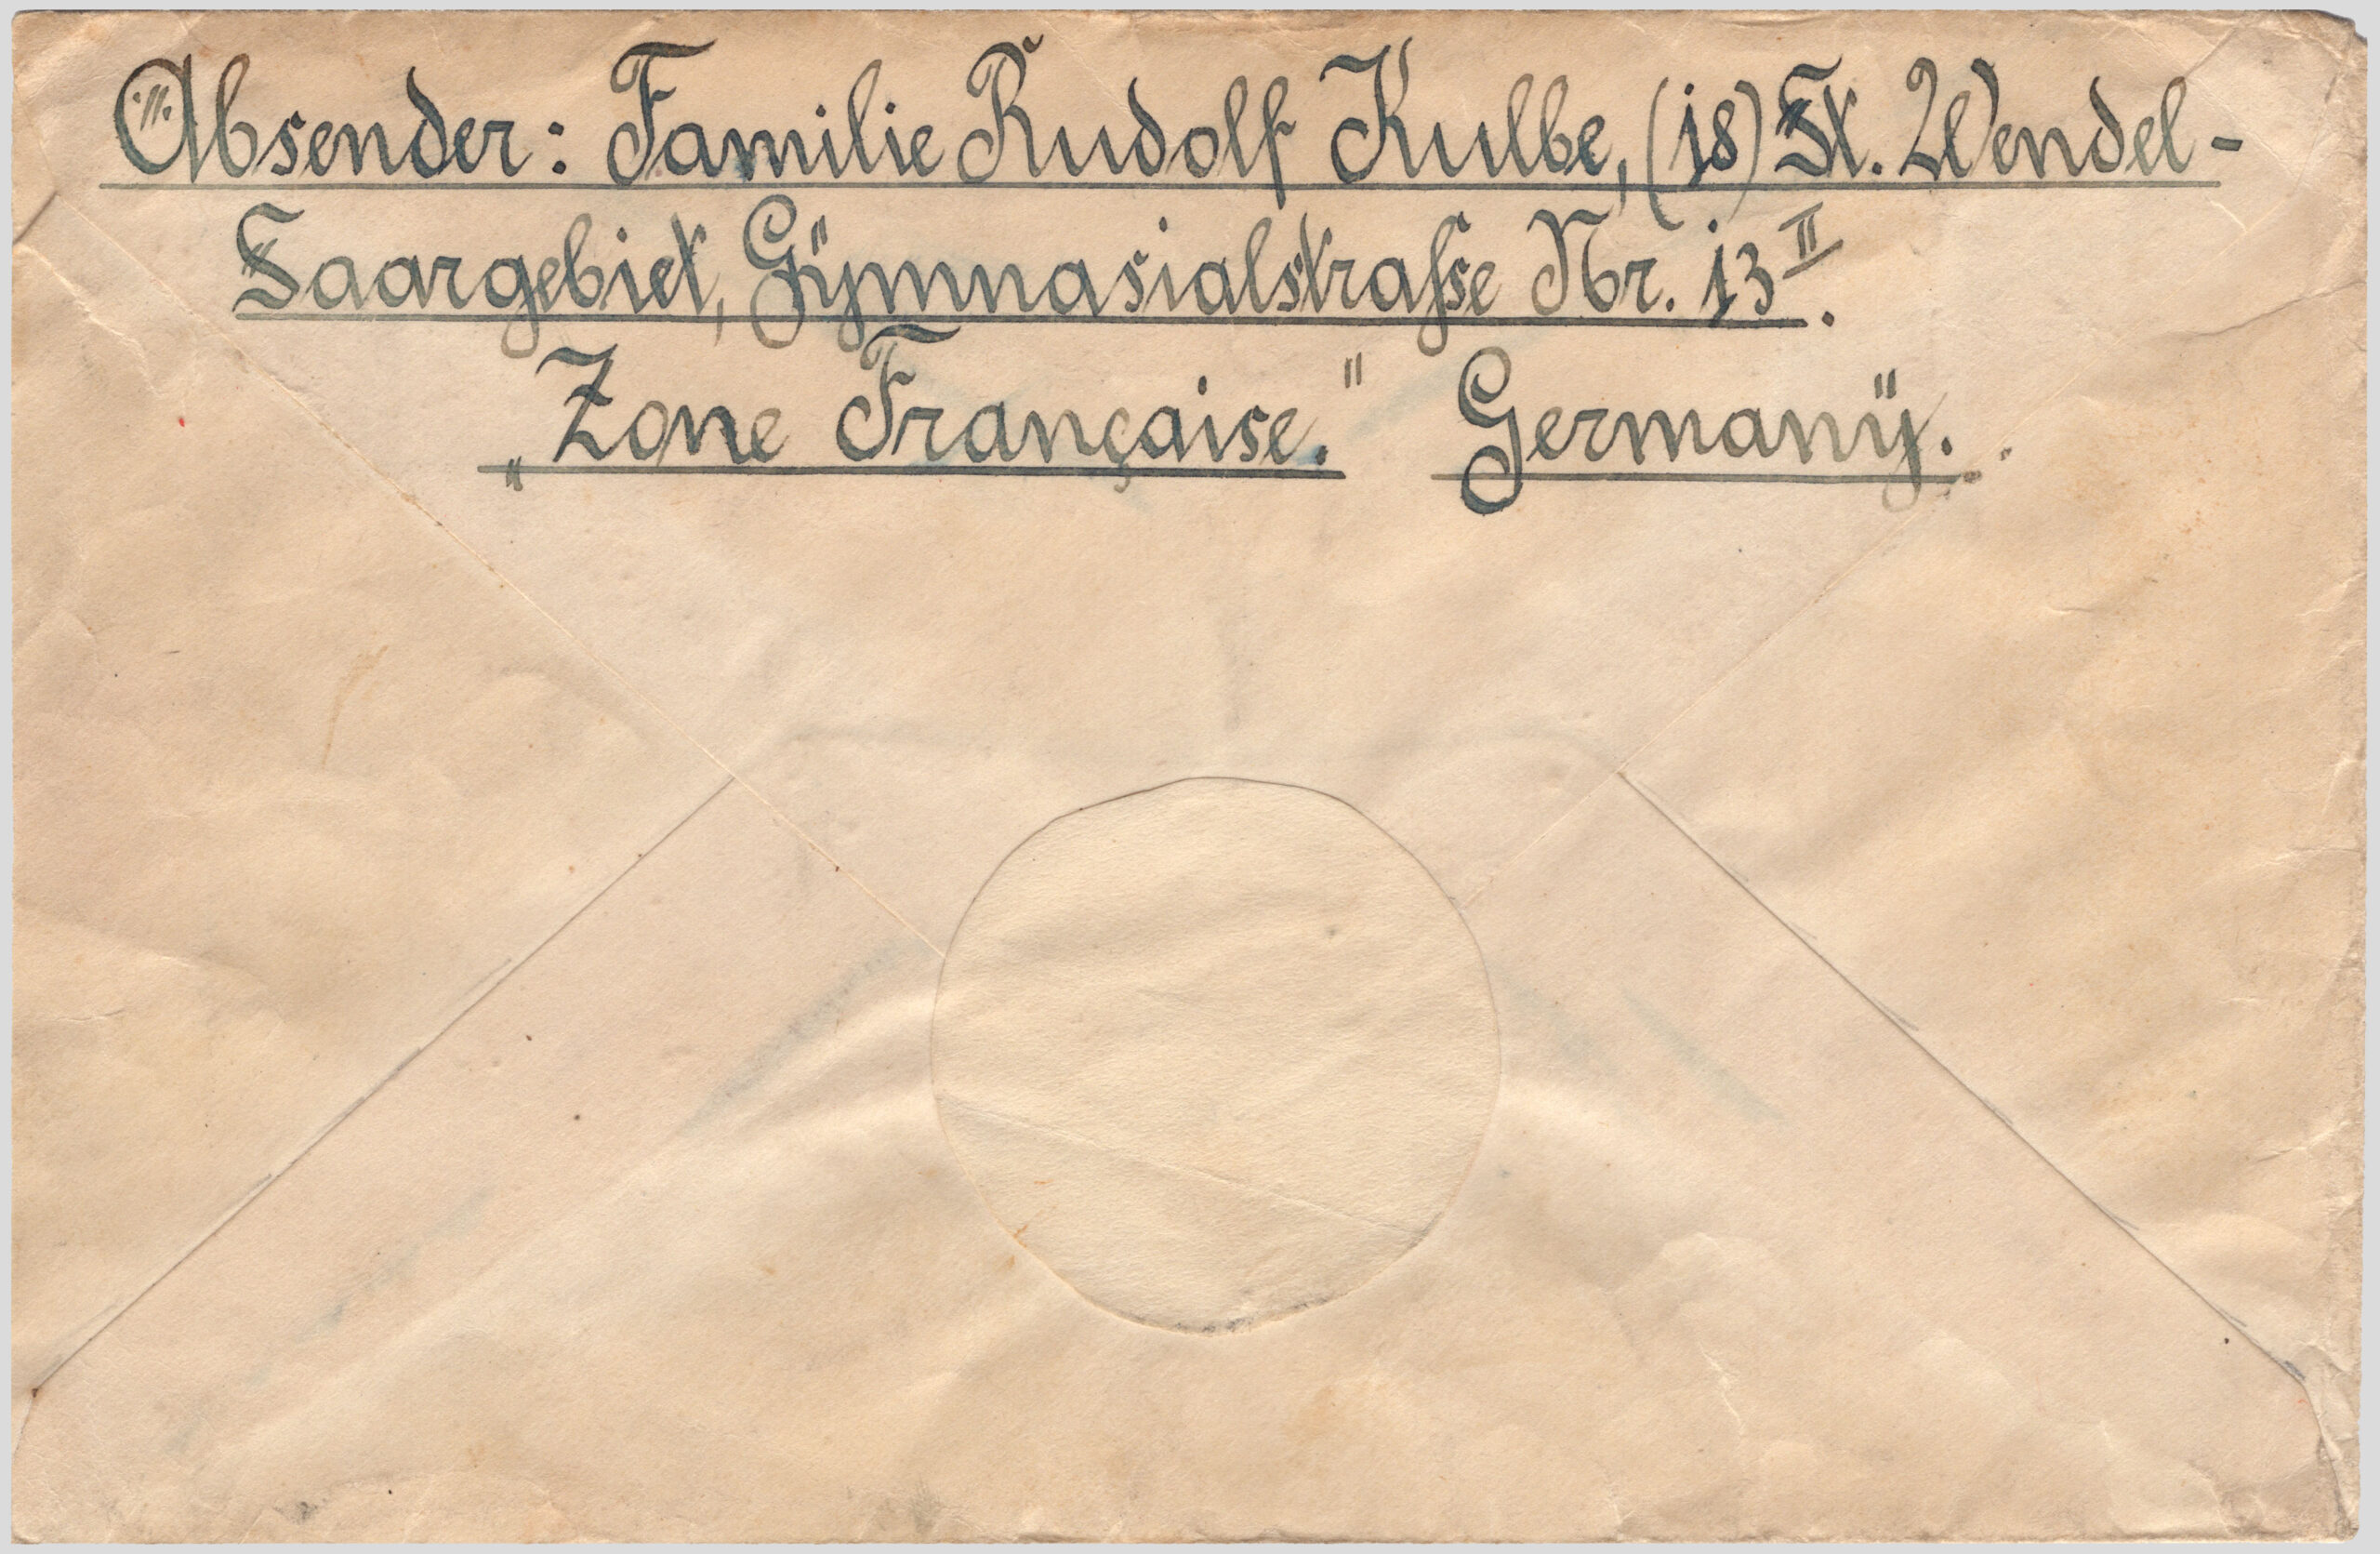 Absender: Familie Rudolf Kulbe, (18) St. Wendel-
Saargebiet, Gÿmnasialstrasse Nr. 13 II.
„Zone Française." Germanÿ.